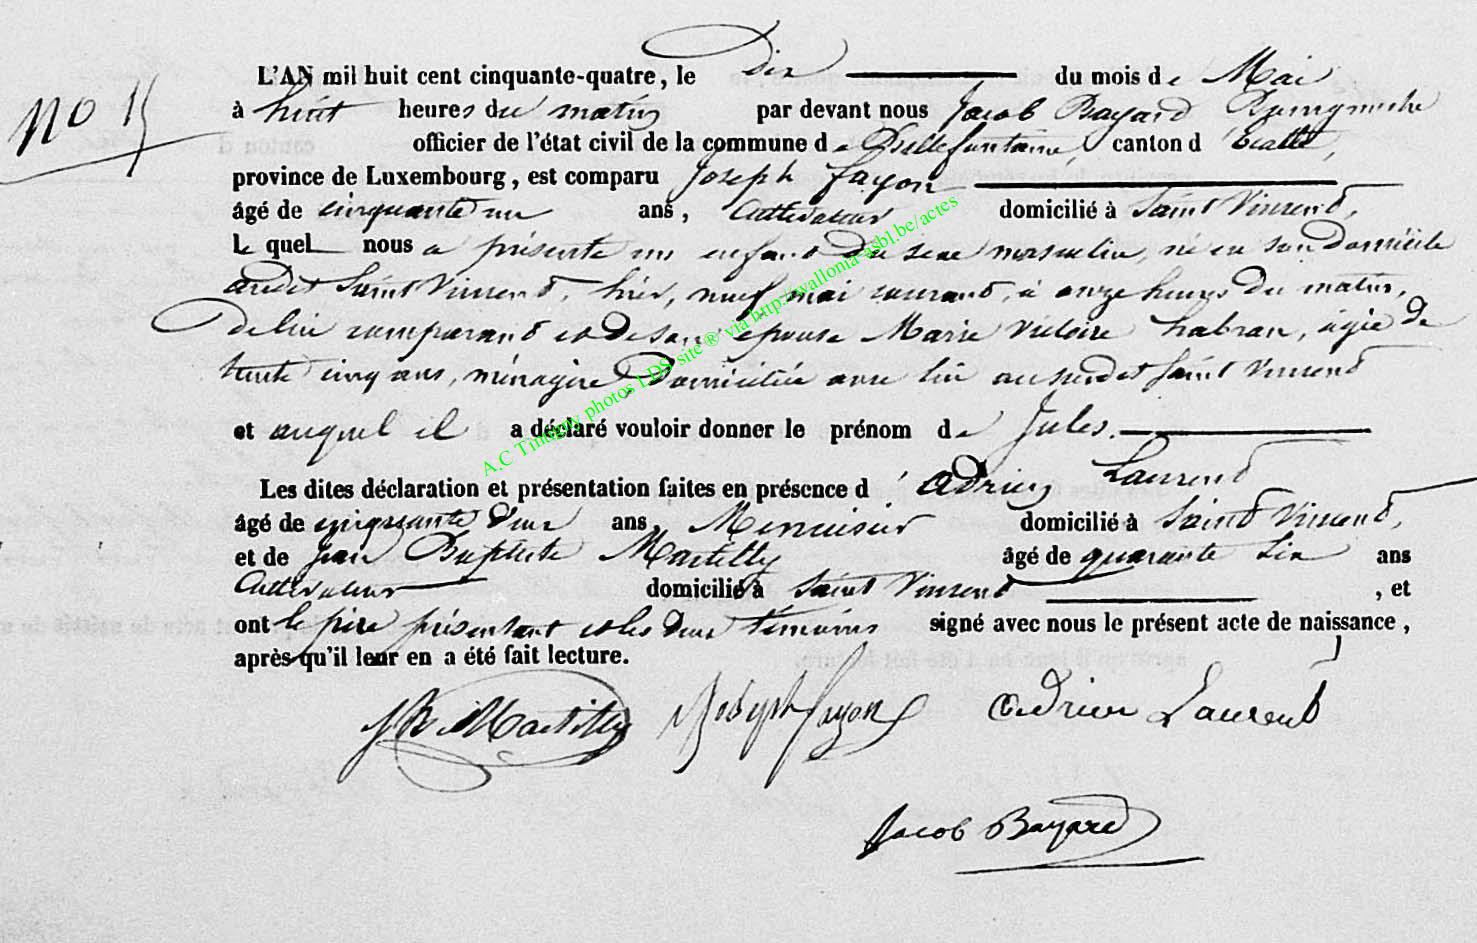 L'AN mil huit cent cinquante-quatre, le dix du mois de Mai
No 15
à huit heures du matin par devant nous Jacob Bayard Bourgmestre
officier de l'état civil de la commune de Bellefontaine, canton d'Etalle,
province de Luxembourg, est comparu Joseph fayon
âgé de cinquante un ans, Cultivateur domicilié à Saint Vincend,
le quel nous a présenté un enfant du sexe masculin, né en son domicile
audit Saint Vincend, hier, neuf mai courant, à onze heures du matin,
de lui comparant et de son épouse Marie Victoire habran, agée de
trente cinq ans, ménagère, Domiciliée avec lui audit Saint Vincend
et auquel il a déclaré vouloir donner le prénom de Jules.
Les dites déclaration et présentation faites en présence d'Adrien Laurend
âgé de cinquante deux ans, Menuisier domicilié à Saint Vincend,
et de Jean Baptiste Martilly âgé de quarante six ans
Cultivateur domicilié à Saint Vincend, et
ont le père présentant et les deux témoins signé avec nous le présent acte de naissance,
après qu'il leur en a été fait lecture.
JB Martilly Joseph fayon Adrien Laurent
Jacob Bayard
A.C Tintigny photos LDS site ® via http://wallonia-asbl.be/actes